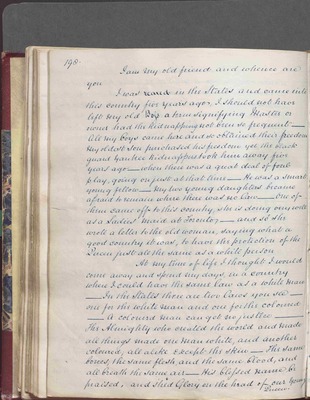 198
I am my old friend and whence are
you
I was raised in the States and came into
this country five years ago, I should not have
left my old Boss a term signifying Master or
owner had the kidnapping not been so frequent —
All my boys came here and so obtained their freedom
My oldest son purchased his freedom yet the black
guard Yankee Kidnappers took him away five
years ago — when there was a great deal of foul
play, going on just at that time — He was a smart
young fellow — My two young daughters became
afraid to remain where there was no law — One of
them came off to this country, she is doing very well
as a Ladies' maid at Toronto — and so she
wrote a letter to the old woman, saying what a
good country it was, to have the protection of the
Queen just all the same as a white person
At my time of life I thought I would
come away and spend my days, in a country
where I could have the same law as a white man
— In the States there are two Laws you see —
one for the white man and one for the colored
— A colourd man can get no justice —
The Almighty who created the world and made
all things made one man white, and another
coloured, all alike except the skin — The same
bones, the same flesh and the same blood, and
all breath the same air — His blessed name be
praised, and shed Glory on the head of our Young
Queen